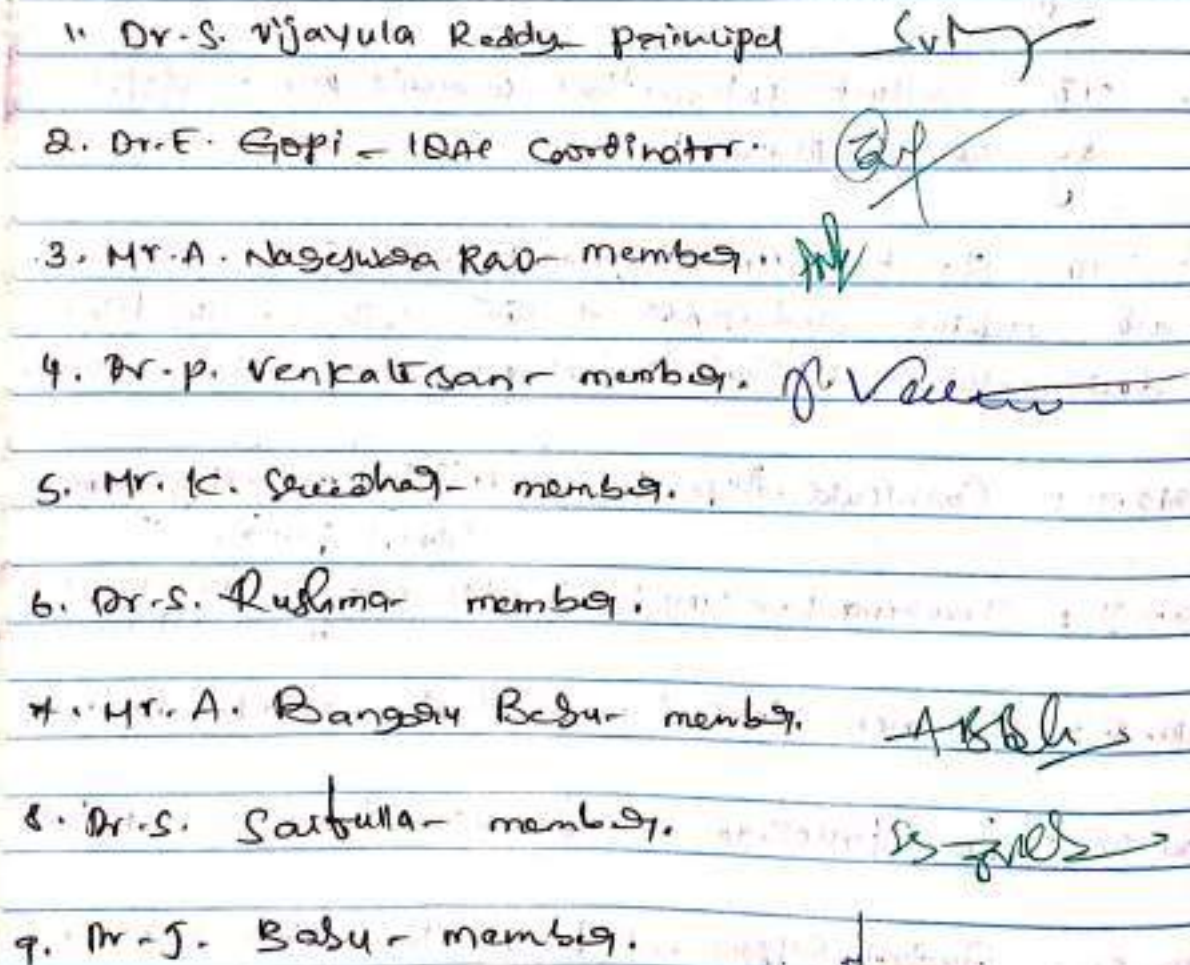 1. Dr. S. Vijayula Reddy principal
2. Dr. E. Gopi - IQAC Coordinator.
3. Mr. A. Nageswara Rao - member.
4. Dr. P. Venkatesan - member.
5. Mr. K. Sreedhar - member.
6. Dr. S. Rushma - member.
7. Mr. A. Bangaru Babu - member.
8. Dr. S. Saifulla - member.
9. J. Babu - member.